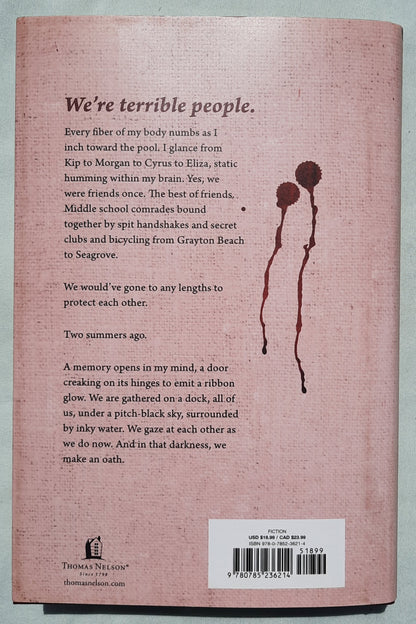 We're terrible people.
Every fiber of my body numbs as I
inch toward the pool. I glance from
Kip to Morgan to Cyrus to Eliza, static
humming within my brain. Yes, we
were friends once. The best of friends,
Middle school comrades bound
together by spit handshakes and secret
clubs and bicycling from Grayton Beach
to Seagrove.
We would've gone to any lengths to
protect each other.
Two summers ago.
A memory opens in my mind, a door
creaking on its hinges to emit a ribbon
glow. We are gathered on a dock, all of
us, under a pitch-black sky, surrounded
by inky water. We gaze at each other as
we do now. And in that darkness, we
make an oath.
THOMAS NELSON®
Since 1798
thomasnelson.com
FICTION
USD $18.99 / CAD $23.99
ISBN 978-0-7852-3621-4
51899
9 780785 236214